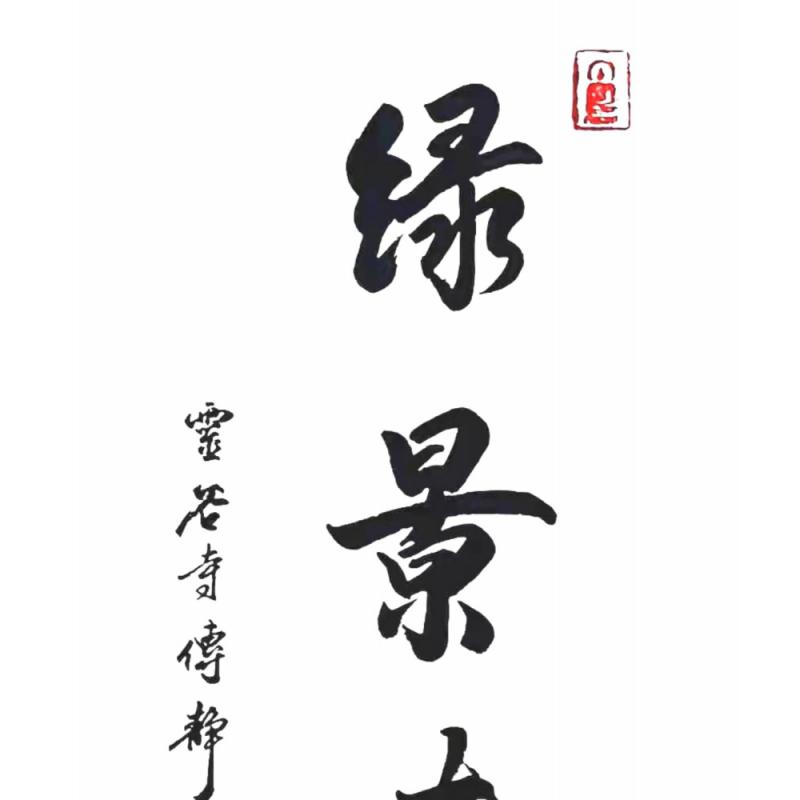 绿景
靈谷寺傳靜